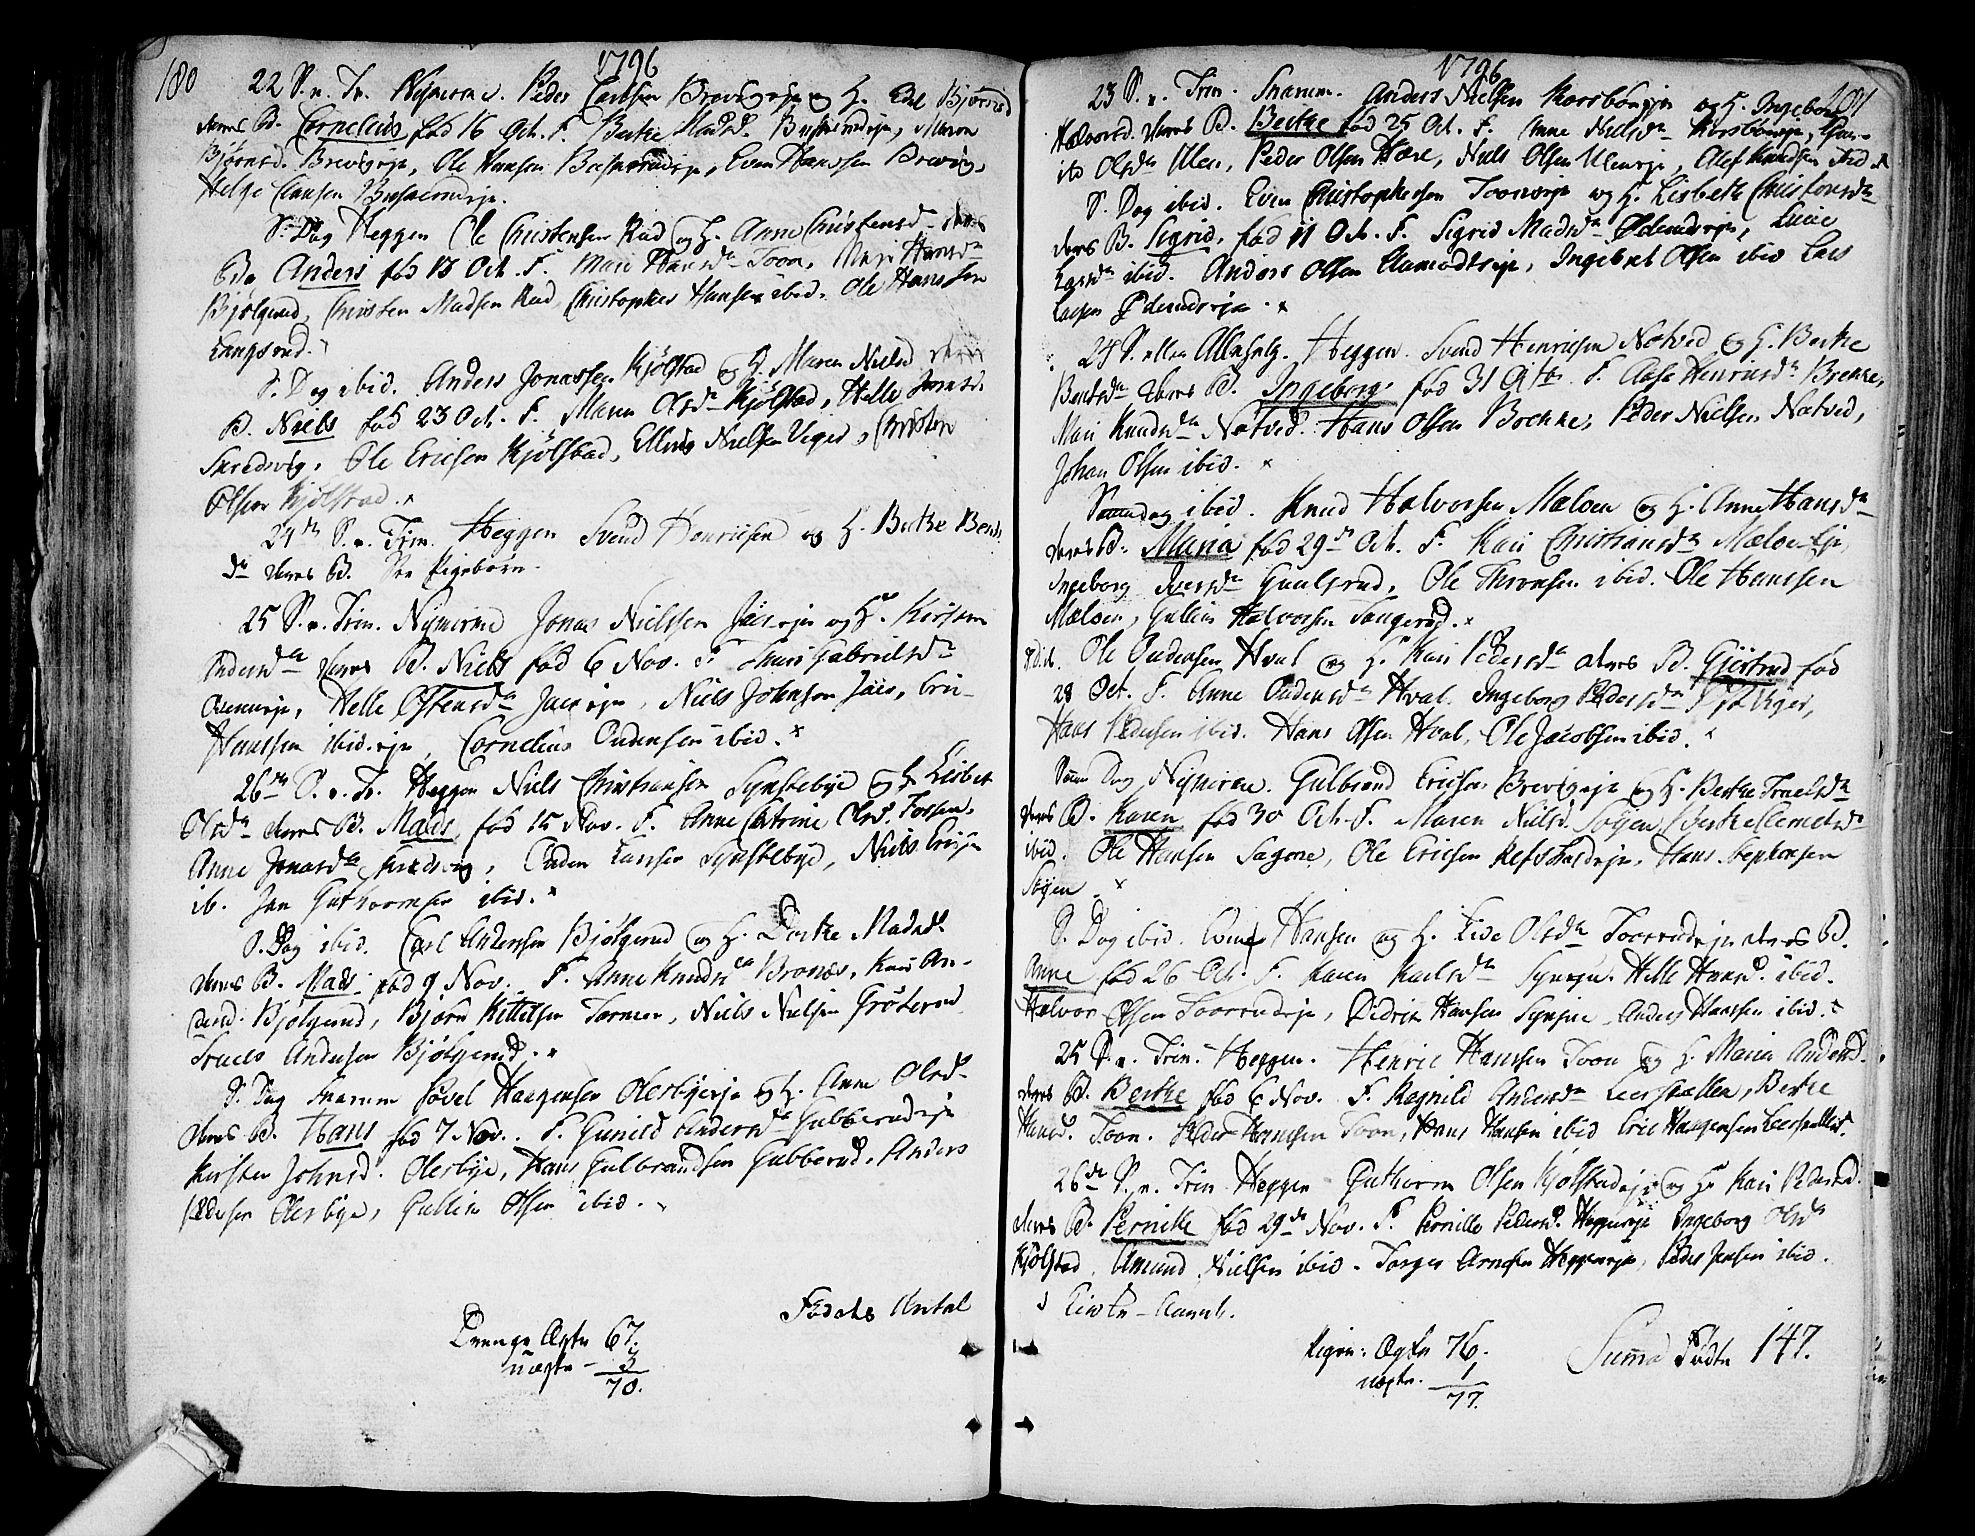 180
1796
22 S. n. Tr. Nymoen. Peder Carlsen Brevigeje og H. Edel Bjørnsd
deres B. Cornelius fød 16 Oct. F. Berthe Madsd. Buskerudeje, Maren
Bjørnsd. Brevigeje, Ole Hansen Buskerudeje, Even Hanssen Brevig,
Helge Clausen Buskerudeje.
S. Dag Heggen Ole Christensen Rud og H. Anne Christensd. deres
B. Anders fød 13 Oct. F. Mari Hansdr Toon, Mari Hansdr
Bjølgerud, Christen Madsen Rud, Christopher Hansen ibid. Ole Hanssen
Langerud.
S. Dag ibid. Anders Jonassen Kjølstad og H. Maren Nielsd deres
B. Niels fød 23 Oct. F. Maren Olsdr Kjølstad, Helle Jonasd.
Skredsvig, Ole Ericsen Kjølstad, Elling Nielsen Viger, Christen
Olsen Kjølstad.
24de S. n. Trin. Heggen Svend Henricsen og H. Berthe Bends
dr deres B. Pigebarn.
25 S. n. Trin. Nymoen Jonas Nielssen Jaer eje og H. Kirsten
Andersdr deres B. Niels fød 6 Nov. F. Gabrielsdr
eje, Helle Østensdr Jaer eje, Niels Johnsen Jaer, Eric
Hanssen ibid. eje, Cornelius Oudensen ibid.
26de S. n. Tr. Heggen Niels Christiansen Synstebye og H. Lisbet
Olsdr deres B. Mads fød 15 Nov. F. Anne Catrine Olsd. Forsen,
Anne Jonasdr Skredsvig, Ouden Larssen Synstebye, Niels Ericsen
ib. Jan Guthormsen ibid.
S. Dag ibid. Carl Anderssen Bjølgerud og H. Dorthe Madsd.
deres B. Mads fød 9 Nov. F. Anne Knudsdr Branæs, Kari An-
dersd. Bjølgerud, Bjørn Kittelsen Tormoen, Niels Nielsen Grøterud
Truels Andersen Bjølgerud.
S. Dag Snarum Povel Haagensen Olerbyeeje og H. Anne Olsd.
deres B. Hans fød 7 Nov. F. Gunild Andersdr Gubberudeje
Kirsten Johnsd. Olerbye, Hans Gulbrandsen Gubberud, Anders
Pedersen Olerbye, Gullik Olsen ibid.
Fødtes Antal
Drenge Ægte 67.
uægte - 3
70.
1796
181
23 S. n. Trin. Snarum. Anders Nielsen Korsbøneje og H. Ingeborg
Halvorsd. deres B. Berthe fød 25 Oct. F. Anne Nielsdr Korsbøneje,
Olsdr Ulen, Peder Olsen Hære, Niels Olsen Uleneje, Olef Knudsen
S. Dag ibid. Even Christophersen Toooneje og H. Lisbeth Christensdr
deres B. Sigrid, fød 11 Oct. F. Sigrid Madsdr Ødemdseje, Live
Larsdr ibid. Anders Olsen Aamodtseje, Ingebret Olsen ibid Lars
Larsen
24 S. eller Allehelg. Heggen. Svend Henricsen Natved og H. Berthe
Bentsdr deres B. Ingeborg fød 31 Oct. F. Aase Henricsdr Brekke,
Mari Knudsdr Natved. Hans Olsen Brekke, Peder Nielsen Natved,
Johan Olsen ibid.
Samme dag ibid. Knud Halvorsen Mæloen og H. Anne Hansdr
deres B. Maria fød 29de Oct. F. Kari Christiansdr Mæloe Eje,
Ingeborg Iversdr Gaulsrud, Ole Thronsen ibid. Ole Hanssen
Mæloen, Gullik Halvorsen Sangerud.
S. D. ib. Ole Oudensen Hval og H. Kari Pedersdr deres B. Giertrud fød
28 Oct. F. Anne Oudensdr Hval. Ingeborg Pedersdr Viger,
Hans Pedersen ibid. Hans Olsen Hval, Ole Jacobsen ibid.
Samme Dag Nymoen. Gulbrand Ericsen Brevigeje og H. Berthe Truelsdr
deres B. Karen fød 30 Oct. F. Maren Nielsd. Søyen, Berthe Clemetsdr
ibid. Ole Hansen Sagene, Ole Ericsen Hans Stephensen
Søyen
S. Dag ibid. Hansen og H. Live Olsdr Toorrudeje deres B.
Anne fød 26 Oct. F. Karen Karlsdr Helle Hansd. ibid.
Halvor Olsen Toorrudeje, Didrik Hansen Anders Hanssen ibid.
25 S. n. Trin. Heggen. Henric Hanssen Toon og H. Maria Andersd.
deres B. Berthe fød 6 Nov. F. Ragnild Andersdr Leerskallen, Berthe
Hansd. Toon. Peder Hanssen Toon, Hans Hansen ibid Eric Haagensen Leerskallen.
26de S. n. Trin Heggen Guthorm Olsen Kjølstadeje og H. Kari Pedersd.
deres B. Pernille fød 29de Nov. F. Pernille Pedersd. Heggeneje Ingeborg Olsdr
Kjølstad. Amund Nielsen ibid. Torger Arnesen Heggeneje, Peder Jensen ibid.
Pigen: Ægte 76.
uægte. 1
77.
Summa Fødte 147.